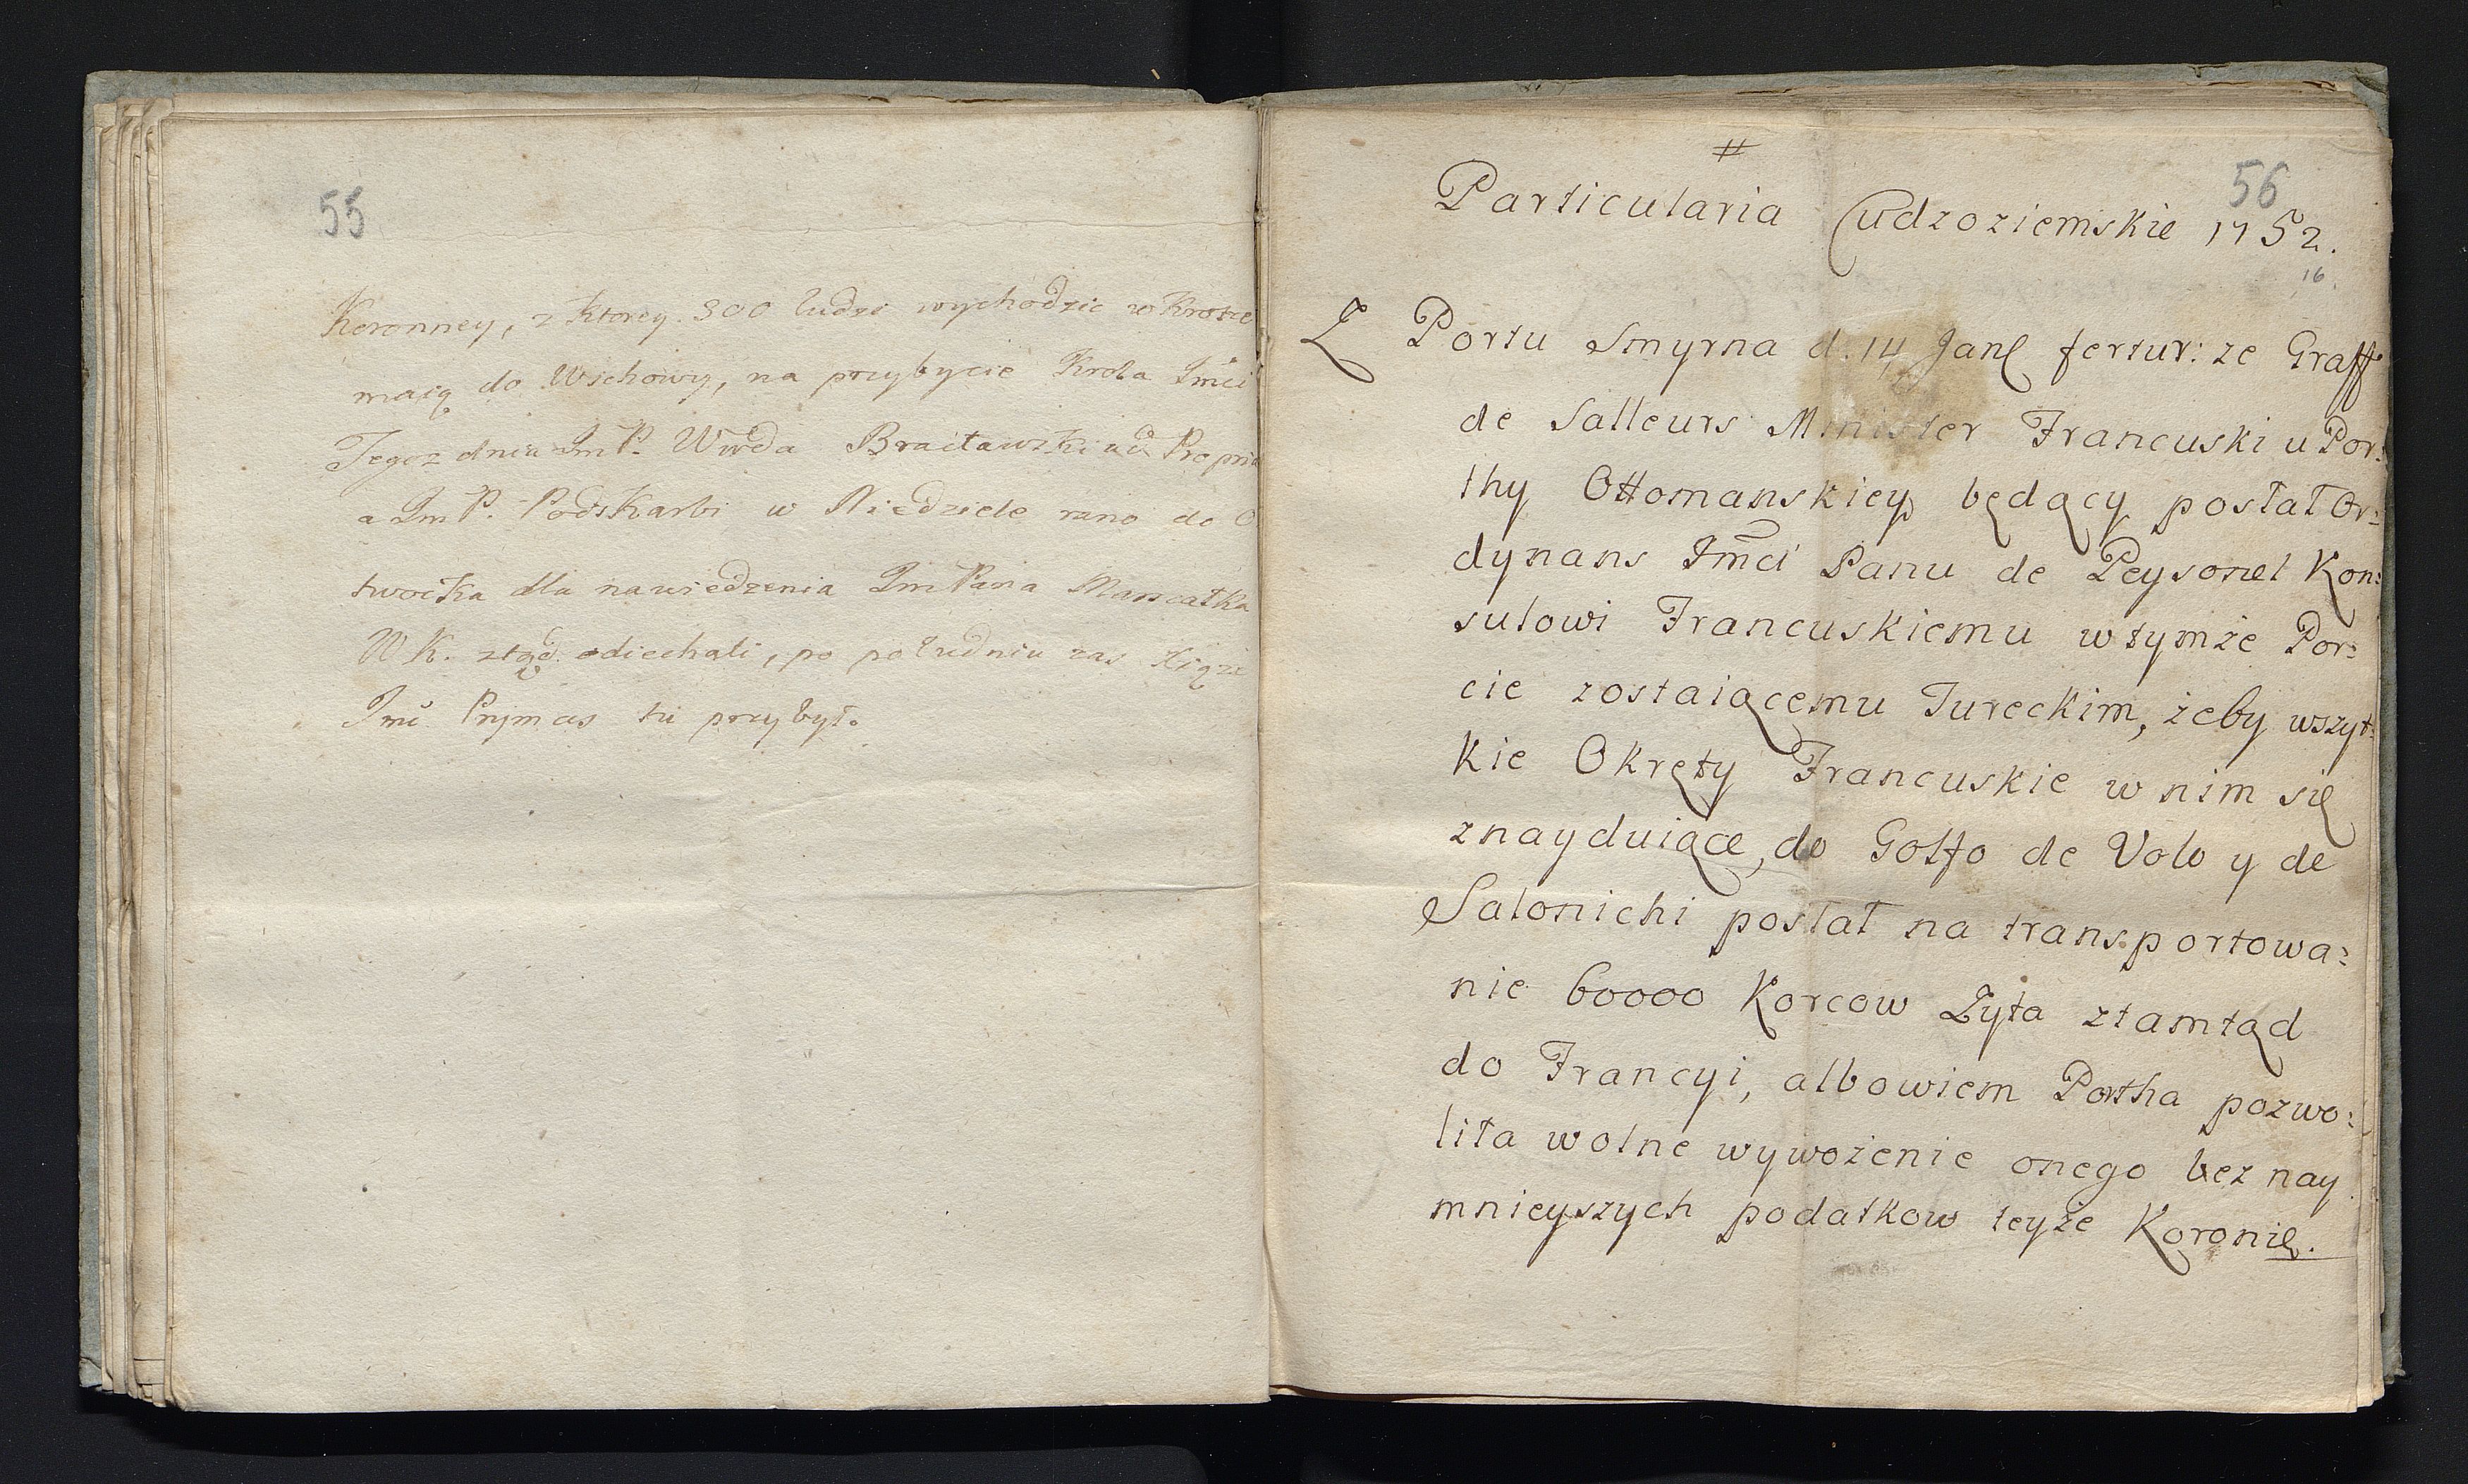 55
Koronney, z ktorey 300 ludzi wychodzic w Krotce
maią do Wschowy, na przybycie Krola Jmći
Tegoz dnia JmP. Wwda Bracławski ad Propria
a JmP. Podskarbi w Niedziele rano do O
twocka dla nawiedzenia JmPana Marszałka
WK. ztąd odiechali, po południu zas Xiąże
Jmć Prymas tu przybył.
#
56
Particularia Cudzoziemskie 1752.
16.
Z Portu Smyrna d. 14 Jan fertur: ze Graff
de Salleurs Minister Francuski u Por:
thy Ottomanskiey będący posłał Or:
dynans Jmći Panu de Peysonel Kon:
sulowi Francuskiemu w tymże Por:
cie zostaiącemu Tureckim, żeby wszyt:
kie Okręty Francuskie w nim się
znayduiące, do Golfo de Volo y de
Salonichi posłał na transportowa:
nie 60000 Korcow Zyta ztamtąd
do Francyi, albowiem Portha pozwo:
liła wolne wywożenie onego bez nay
mnieyszych podatkow teyże Koronie.